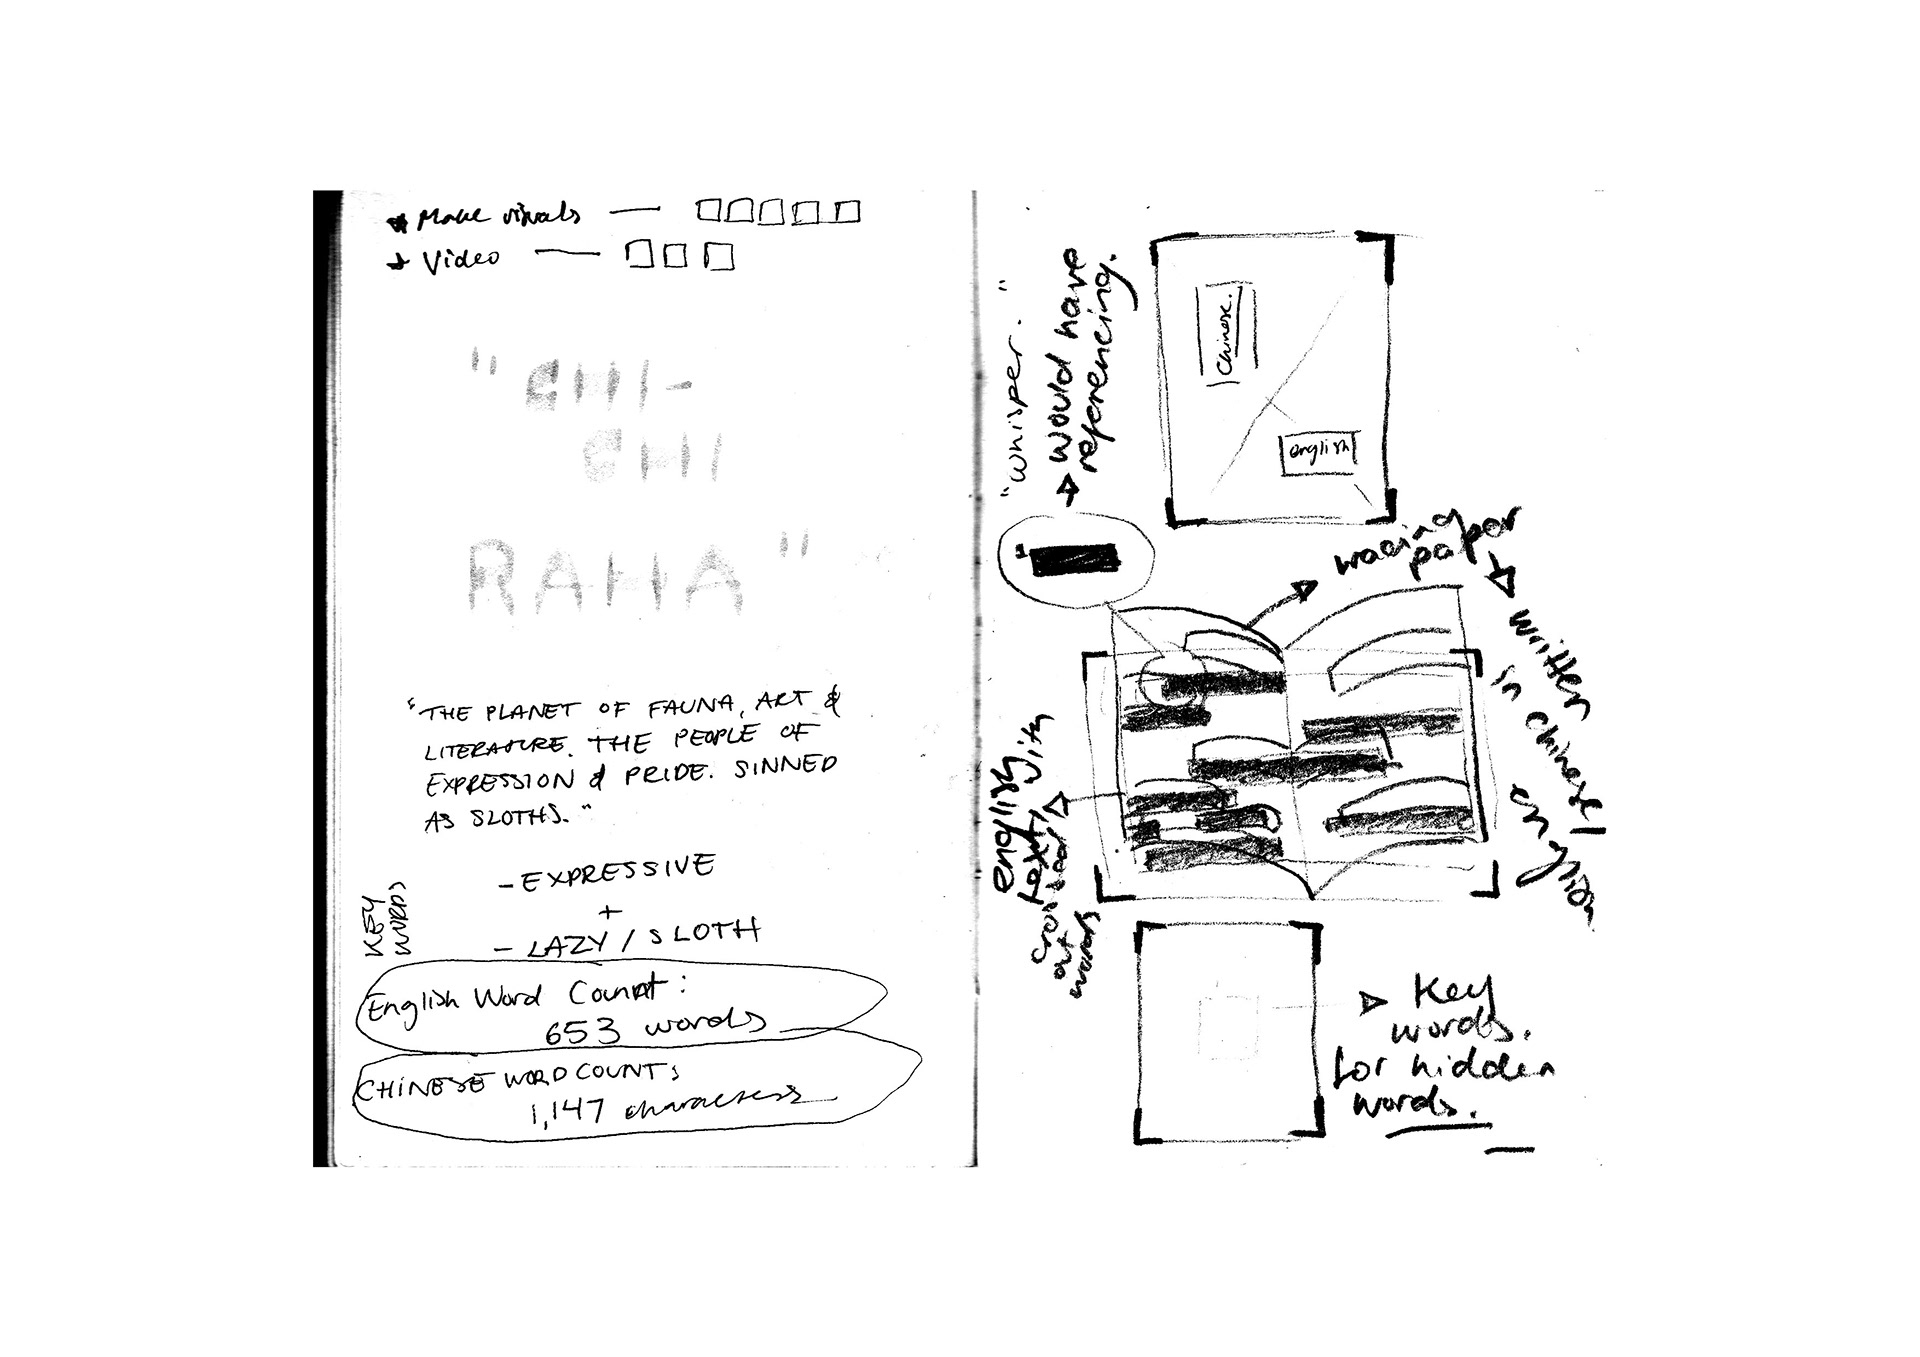 Make visuals —
Video —
"CHI-
CHI
RAHA"
"THE PLANET OF FAUNA, ART &
LITERATURE. THE PEOPLE OF
EXPRESSION & PRIDE. SINNED
AS SLOTHS."
KEY
WORDS
- EXPRESSIVE
+
- LAZY / SLOTH
English Word Count:
653 words
CHINESE WORD COUNT:
1,147 characters
"whisper."
→ would have
referencing.
Chinese.
english
1
paper
written
in chinese/
english
text with
crossed
out
words
Key
words.
for hidden
words.